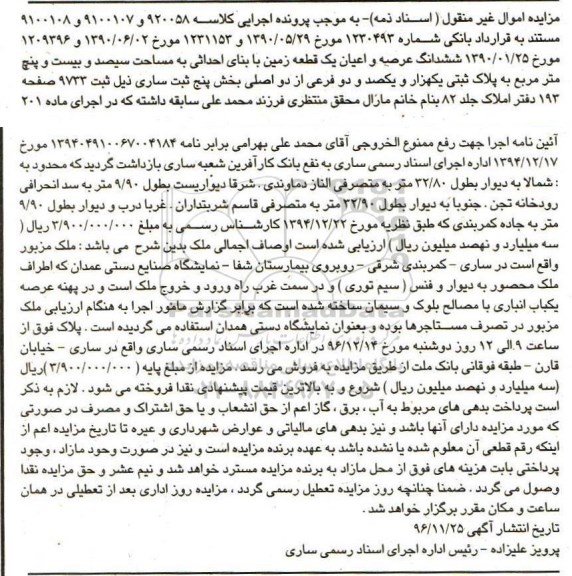 مزایده اموال غیر منقول ( اسناد ذمه)- به موجب پرونده اجرایی کلاسه ۹۲۰۰۵۸ و ۹۱۰۰۱۰۷ و ۹۱۰۰۱۰۸
مستند به قرارداد بانکی شماره ۱۲۳۰۴۹۳ مورخ ۱۳۹۰/۰۵/۲۹ و ۱۲۳۱۱۵۳ مورخ ۱۳۹۰/۰۶/۰۲ و ۱۲۰۹۳۹۶
مورخ ۱۳۹۰/۰۱/۲۵ ششدانگ عرصه و اعیان یک قطعه زمین با بنای احداثی به مساحت سیصد و بیست و پنج
متر مربع به پلاک ثبتی یکهزار و یکصد و دو فرعی از دو اصلی بخش پنج ثبت ساری ذیل ثبت ۹۷۳۳ صفحه
۱۹۳ دفتر املاک جلد ۸۲ بنام خانم مارال محقق منتظری فرزند محمد علی سابقه داشته که در اجرای ماده ۲۰۱
آئین نامه اجرا جهت رفع ممنوع الخروجی آقای محمد علی بهرامی برابر نامه ۱۳۹۴۰۴۹۱۰۰۶۷۰۰۴۱۸۴ مورخ
۱۳۹۴/۱۲/۱۷ اداره اجرای اسناد رسمی ساری به نفع بانک کارآفرین شعبه ساری بازداشت گردید که محدود به
: شمالا به دیوار بطول ۳۲/۸۰ متر به متصرفی الناز دماوندی . شرقا دیواریست بطول ۹/۹۰ متر به سد انحرافی
رودخانه تجن . جنوبا به دیوار بطول ۳۲/۹۰ متر به متصرفی قاسم شربتداران . غربا درب و دیوار بطول ۹/۹۰
متر به جاده کمربندی که طبق نظریه مورخ ۱۳۹۴/۱۲/۲۲ کارشناس رسمی به مبلغ ۳/۹۰۰/۰۰۰/۰۰۰ ریال (
سه میلیارد و نهصد میلیون ریال ) ارزیابی شده است اوصاف اجمالی ملک بدین شرح می باشد : ملک مزبور
واقع است در ساری - کمربندی شرقی - روبروی بیمارستان شفا - نمایشگاه صنایع دستی عمدان که اطراف
ملک محصور به دیوار و فنس ( سیم توری ) و در سمت غرب راه ورود و خروج ملک است و در پهنه عرصه
یکباب انباری با مصالح بلوک و سیمان ساخته شده است که برابر گزارش مامور اجرا به هنگام ارزیابی ملک
مزبور در تصرف مستاجرها بوده و بعنوان نمایشگاه دستی همدان استفاده می گردیده است . پلاک فوق از
ساعت ۹ الی ۱۲ روز دوشنبه مورخ ۹۶/۱۲/۱۴ در اداره اجرای اسناد رسمی ساری واقع در ساری - خیابان
قارن - طبقه فوقانی بانک ملت از طریق مزایده به فروش می رسد . مزایده از مبلغ پایه ( ۳/۹۰۰/۰۰۰/۰۰۰ ریال)
(سه میلیارد و نهصد میلیون ریال ) شروع و به بالاترین قیمت پیشنهادی نقدا فروخته می شود . لازم به ذکر
است پرداخت بدهی های مربوط به آب ، برق ، گاز اعم از حق انشعاب و یا حق اشتراک و مصرف در صورتی
که مورد مزایده دارای آنها باشد و نیز بدهی های مالیاتی و عوارض شهرداری و غیره تا تاریخ مزایده اعم از
اینکه رقم قطعی آن معلوم شده یا نشده باشد به عهده برنده مزایده است و نیز در صورت وجود مازاد ، وجوه
پرداختی بابت هزینه های فوق از محل مازاد به برنده مزایده مسترد خواهد شد و نیم عشر و حق مزایده نقدا
وصول می گردد . ضمنا چنانچه روز مزایده تعطیل رسمی گردد ، مزایده روز اداری بعد از تعطیلی در همان
ساعت و مکان مقرر برگزار خواهد شد .
تاریخ انتشار آگهی ۹۶/۱۱/۲۵
پرویز علیزاده - رئیس اداره اجرای اسناد رسمی ساری